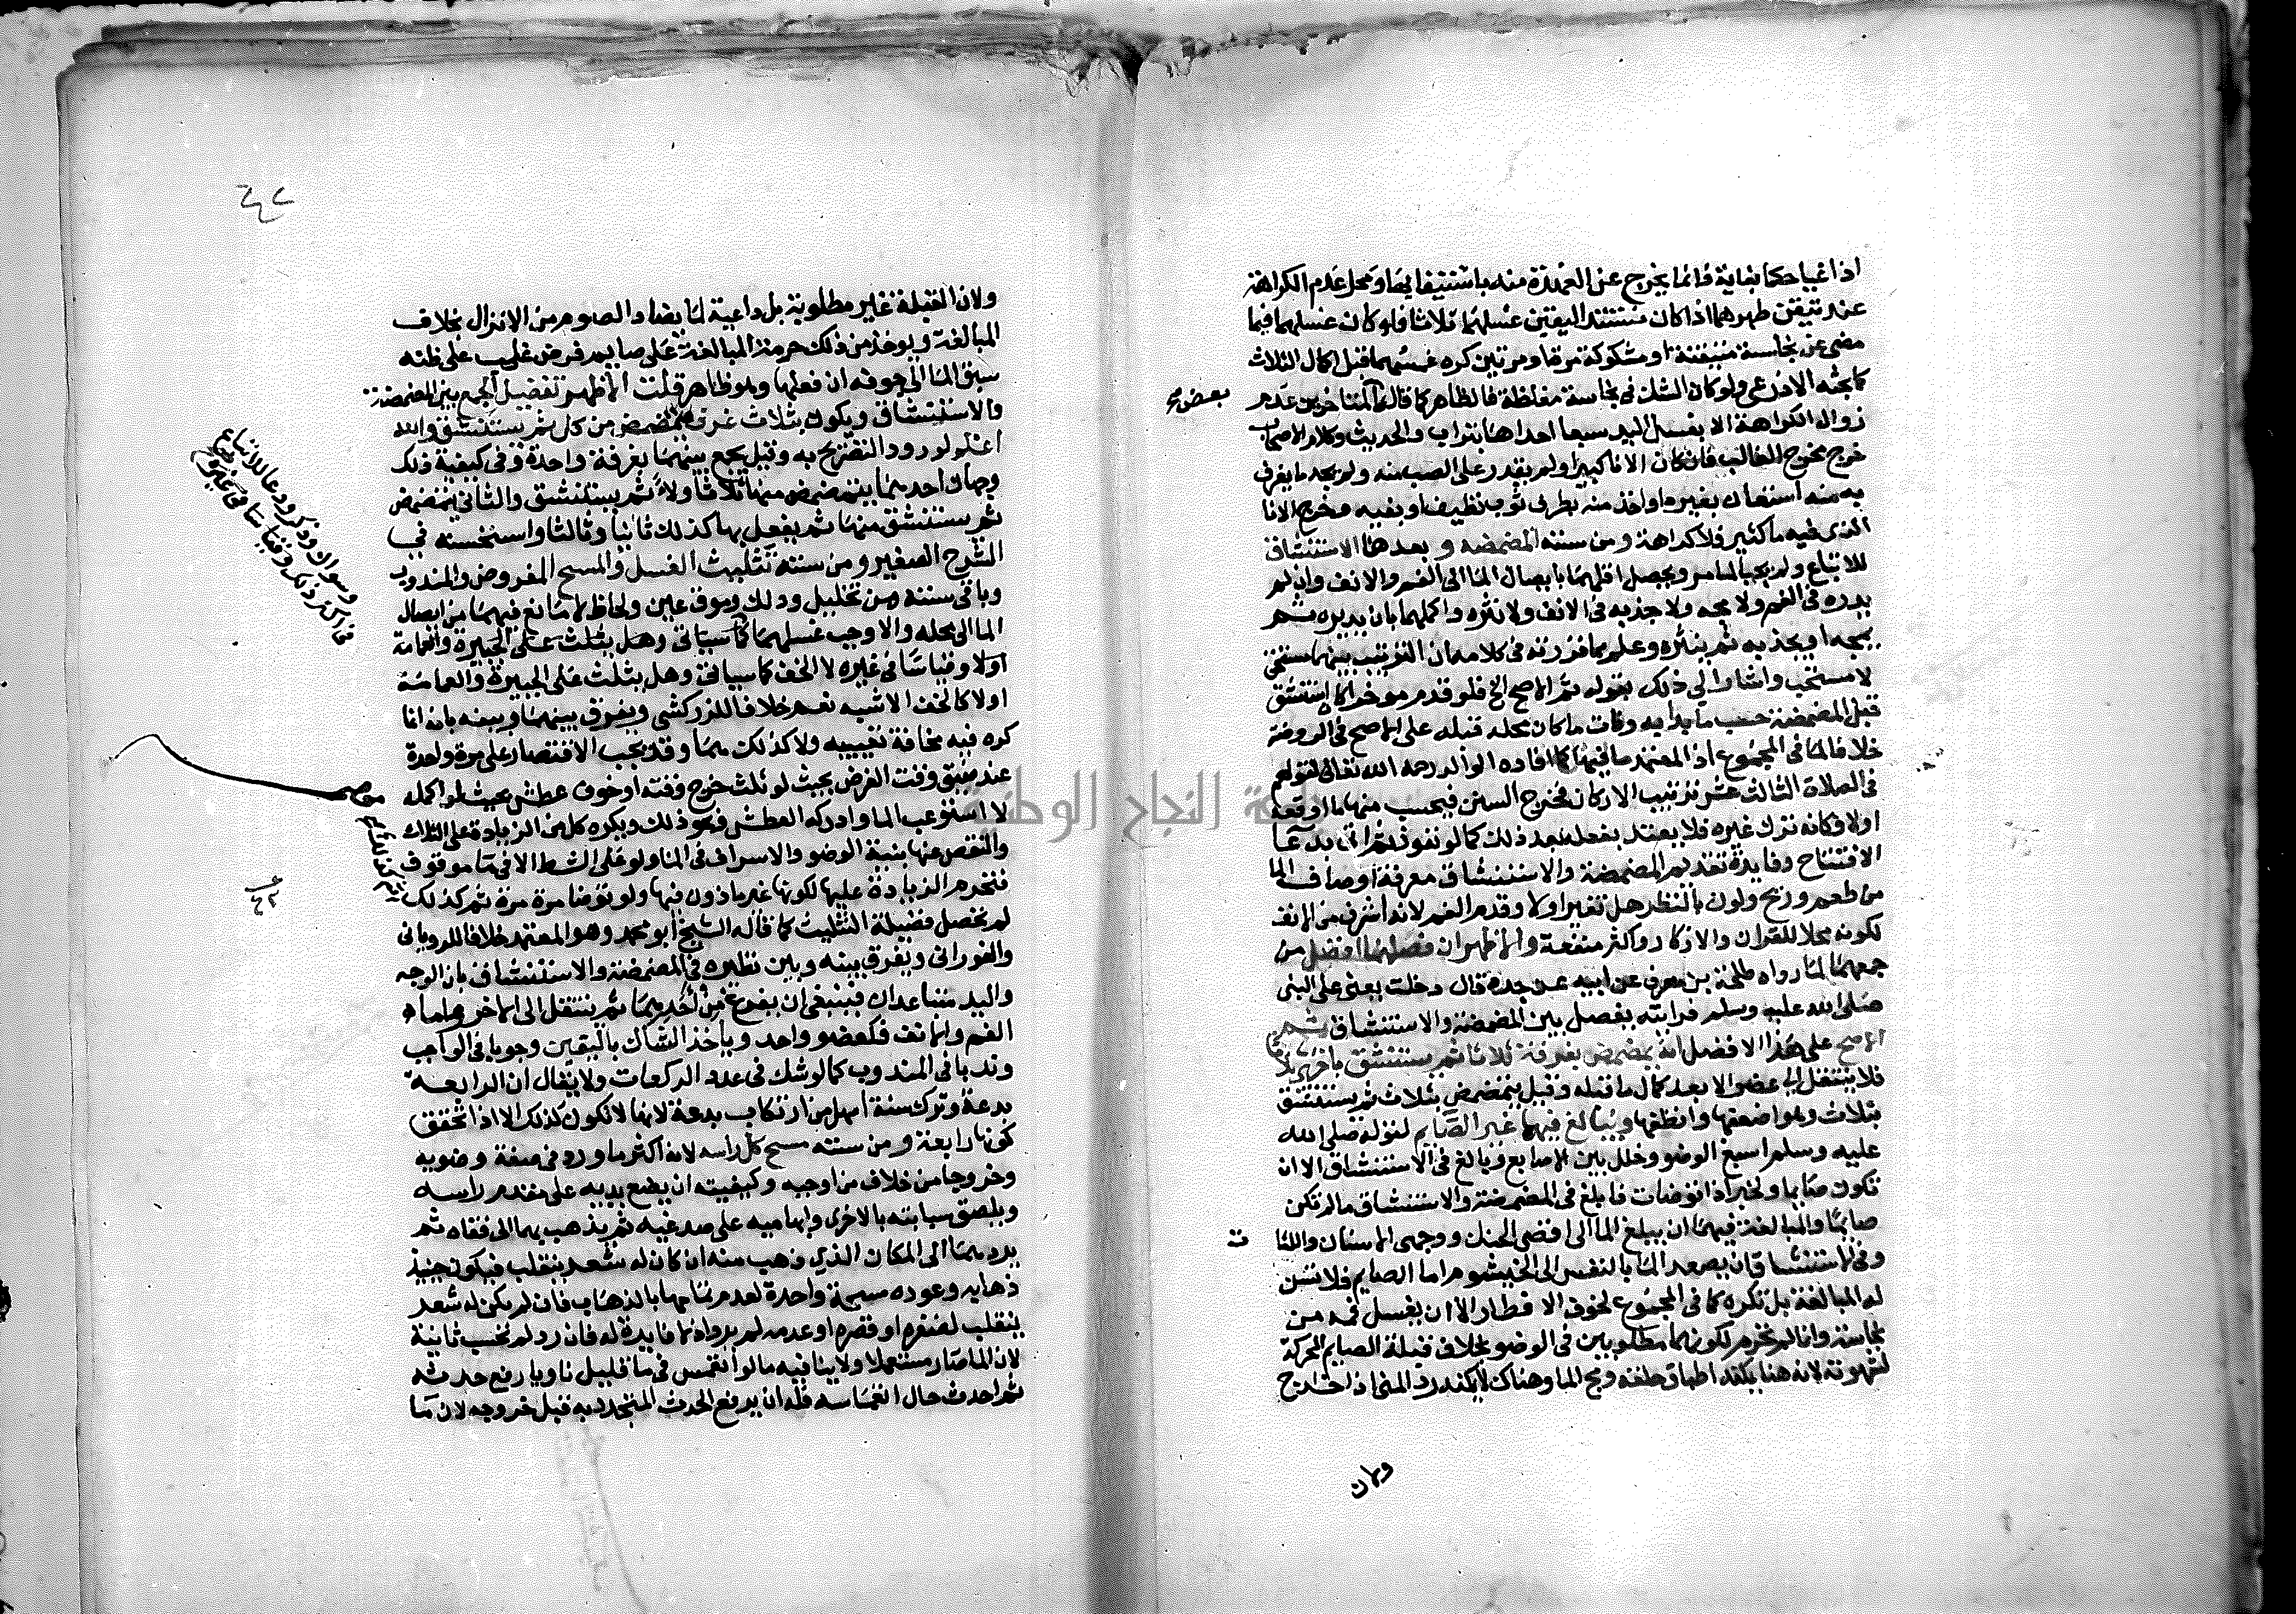 اذا غيا حكما بغاية فانما يخرج عن العهدة منه باستيفايها ومحل عدم الكراهة
عند تيقن طهرهما اذا كان مستند اليقين غسلهما ثلاثا فلو كان غسلهما فيما
مضى عن نجاسة متيقنة او مشكوكة مرة او مرتين كره غمسهما قبل اكمال الثلاث
كما بحثه الاذرعي ولو كان الشك في نجاسة مغلظة فالظاهر كما قاله المتاخرين عدم
بعض صح
زوال الكراهة الا بغسل اليد سبعا احداها بتراب والحديث وكلام الاصحاب
خرج مخرج الغالب فان كان الانا كبيرا ولم يقدر على الصب منه ولم يجد ما يغرف
به منه استعان بغيره او اخذ منه بطرف ثوب نظيف او بفيه وخرج الانا
الذي فيه ما كثير فلا كراهة ومن سننه المضمضه وبعدها الاستنشاق
للاتباع ولم يجبا لما مر ويحصل اقلهما بايصال الما الى الفم والانف وان لم
يدره في الفم ولا مجه ولا جذبه في الانف ولا نثره واكملهما بان يديره ثم
يمجه او يجذبه ثم ينثره وعلم بما قررته في كلامه ان الترتيب بينهما مستحق
لا مستحب واشار الى ذلك بقوله ثم الاصح الخ فلو قدم موخرا كان استنشق
قبل المضمضة حسب ما بدا به وفات ما كان محله قبله على الاصح في الروضة
خلافا لما في المجموع اذ المعتمد ما فيها كما افاده الوالد رحمه الله تعالى لقولهم
في الصلاة الثالث عشر ترتيب الاركان فخرج السنن فيحسب منها ما اوقعه
اولا فكانه ترك غيره فلا يعتد بفعله بعد ذلك كما لو تعوذ ثم اتى بدعا
الافتتاح وفايدة تقديم المضمضة والاستنشاق معرفة اوصاف الما
من طعم وريح ولون بالنظر هل تغير اولا وقدم الفم لانه اشرف من الانف
لكونه محلا للقران والاذكار واكثر منفعة والاظهر ان فصلهما افضل من
جمعهما لما رواه طلحة بن مصرف عن ابيه عن جده قال دخلت يعني على النبي
صلى الله عليه وسلم فرايته يفصل بين المضمضة والاستنشاق ثم
الاصح على هذا الافضل انه يمضمض بغرفة ثلاثا ثم يستنشق باخرى ثلاثا
فلا ينتقل الى عضو الا بعد كمال ما قبله وقيل يتمضمض بثلاث ثم يستنشق
بثلاث وهو اضعفها وانظفها ويبالغ فيهما غير الصايم لقوله صلى الله
عليه وسلم اسبغ الوضو وخلل بين الاصابع وبالغ في الاستنشاق الا ان
تكون صايما ولخبر اذا توضات فابلغ في المضمضة والاستنشاق ما لم تكن
صايما والمبالغة فيهما ان يبلغ الما الى اقصى الحنك ووجهي الاسنان واللثا
ت
وفي الاستنشاق ان يصعد الما بالنفس الى الخيشوم اما الصايم فلا تسن
له المبالغة بل تكره كما في المجموع لخوف الافطار الا ان يغسل فمه من
نجاسة وانما لم تحرم لكونهما مطلوبين في الوضو بخلاف قبلة الصايم المحركة
لشهوته لانه هنا يمكنه اطباق حلقه ومج الما وهناك لا يمكنه رد المني اذا خرج
ولان
ولان القبلة غير مطلوبة بل داعية لما يضاد الصوم من الانزال بخلاف
المبالغة ويوخذ من ذلك حرمة المبالغة على صايم فرض غلب على ظنه
سبق الما الى جوفه ان فعلها وهو ظاهر قلت الاظهر تفضيل الجمع بين المضمضة
والاستنشاق ويكون بثلاث غرف يتمضمض من كل ثم يستنشق والله
اعلم لورود التصريح به وقيل يجمع بينهما بغرفة واحدة وفي كيفية ذلك
وجهان احدهما يتمضمض منها ثلاثا ولاء ثم يستنشق والثاني يتمضمض
ثم يستنشق منها ثم يفعل بها كذلك ثانيا وثالثا واستحسنه في
الشرح الصغير ومن سننه تثليث الغسل والمسح المفروض والمندوب
وباقي سننه من تخليل ودلك وموق عين ولحاظ لا مانع فيهما من ايصال
الما الى محله والا وجب غسلهما كما سياتي وهل يثلث على الجبيرة والعمامة
اولا وقياسا في غيره لا الخف كما سياتي وهل يثلث على الجبيرة والعمامة
اولا كالخف الاشبه نعم خلافا للزركشي ويفرق بينهما وبينه بانه انما
كره فيه مخافة تعييبه ولا كذلك هما وقد يجب الاقتصار على مرة واحدة
عند ضيق وقت الفرض بحيث لو ثلث خرج وقته او خوف عطش بحيث لو اكمله
لاستوعب الما وادركه العطش فنحو ذلك ويكره كل من الزيادة على الثلاث
والنقص عنها بنية الوضو والاسراف في الما ولو على الشط الا في ما موقوف
فتحرم الزيادة عليها لكونها غير ماذون فيها ولو توضا مرة مرة ثم كذلك
لم تحصل فضيلة التثليث كما قاله الشيخ ابو محمد وهو المعتمد خلافا للروياني
والفوراني ويفرق بينه وبين نظيره في المضمضة والاستنشاق بان الوجه
واليد متباعدان فينبغي ان يفرغ من احدهما ثم ينتقل الى الاخر واما
الفم والانف فكعضو واحد وياخذ الشاك باليقين وجوبا في الواجب
وندبا في المندوب كما لو شك في عدد الركعات ولا يقال ان الرابعة
بدعة وترك سنة اسهل من ارتكاب بدعة لانها لا تكون كذلك الا اذا تحقق
كونها رابعة ومن سننه مسح كل راسه لانه اكثر ما ورد في صفة وضويه
وخروجا من خلاف من اوجبه وكيفيته ان يضع يديه على مقدم راسه
ويلصق سبابته بالاخرى وابهاميه على صدغيه ثم يذهب بهما الى قفاه ثم
يردهما الى المكان الذي ذهب منه ان كان له شعر ينقلب فيكون حينيذ
ذهابه وعوده مسحة واحدة لعدم تمامها بالذهاب فان لم يكن له شعر
ينقلب لضفره او قصره او عدمه لم يرد اذ لا فايدة له فان رد لم تحسب ثانية
لان الما صار مستعملا ولا ينافيه ما لو انغمس في ما قليل ناويا رفع حدثه
ثم احدث حال انغماسه فله ان يرفع الحدث المتجدد به قبل خروجه لان ما
وسواك وذكر ودعا للاتباع
في اكثر ذلك وقياسا في غيره